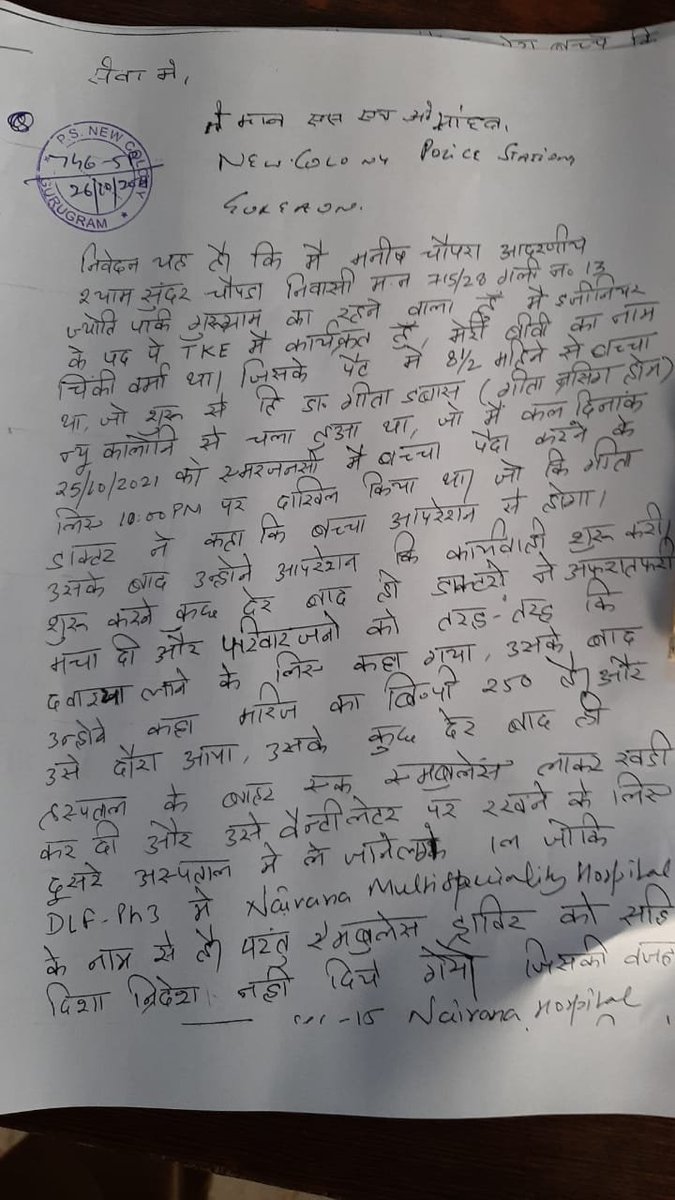 बच्चे कि
सेवा मे,
श्री मान एस एच ओ साहब,
P.S. NEW COLONY
746-5P
26/10/2021
GURUGRAM
NEW. COLONY Police Station
GURGAON.
निवेदन यह है कि मै मनीष चौपरा आदरणीय
श्याम सुंदर चौपडा निवासी म.न 715/28 गली न. 13
ज्योति पार्क गुरुग्राम का रहने वाला हूँ मै इंजीनियर
के पद पे TKE मै कार्यक्रत हूँ, मेरी बीवी का नाम
चिंकी वर्मा था। जिसके पैट मे 8½ महिने से बच्चा
था, जो शुरू से हि डा. गीता डबास (गीता नर्सिग होम)
न्यू कालोनि से चला हुआ था, जो मै कल दिनांक
25/10/2021 को एमरजनसी मै बच्चा पैदा करने के
लिए 10:00 PM पर दाखिल किया था। जो कि गीता
डाक्टर ने कहा कि बच्चा आपरेशन से होगा।
उसके बाद उन्होने आपरेशन कि कार्यवाही शुरू करी।
शुरू करने कुछ देर बाद ही डाक्टरो ने अफरातफरी
मचा दी और परिवारजनो को तरह-तरह कि
दवाईया लाने के लिए कहा गया, उसके बाद
उन्होने कहा मरिज का बि॰पी 250 है। और
उसे दौरा आया, उसके कुछ देर बाद ही
हस्पताल के बाहर एक एम्बुलेंस लाकर खडी
कर दी और उसे वैन्टीलेटर पर रखने के लिए
दूसरे अस्पताल मे ले जाने जोकि
DLF-Ph3 मे Nairana Multispeciality Hospital
के नाम से है। परंतु एमबुलेस ड्राविर को सहि
दिशा निदेश नही दिये गये। जिसकी वजह
Nairana Hospital